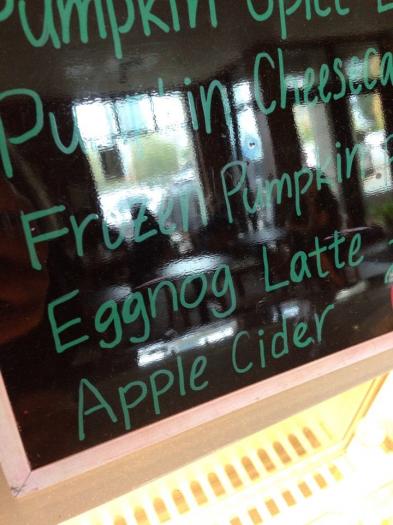 Pumpkin Spice
Pumpkin Cheeseca
Frozen Pumpkin
Eggnog Latte
Apple Cider